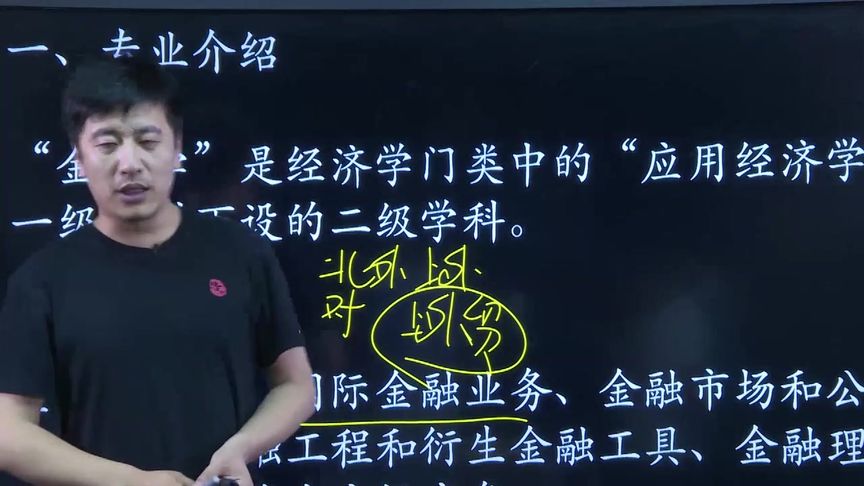 一、专业介绍
“金 学”是经济学门类中的“应用经济学
一级 下设的二级学科。
北外、上外、
对
上外贸
国际金融业务、金融市场和公
融工程和衍生金融工具、金融理